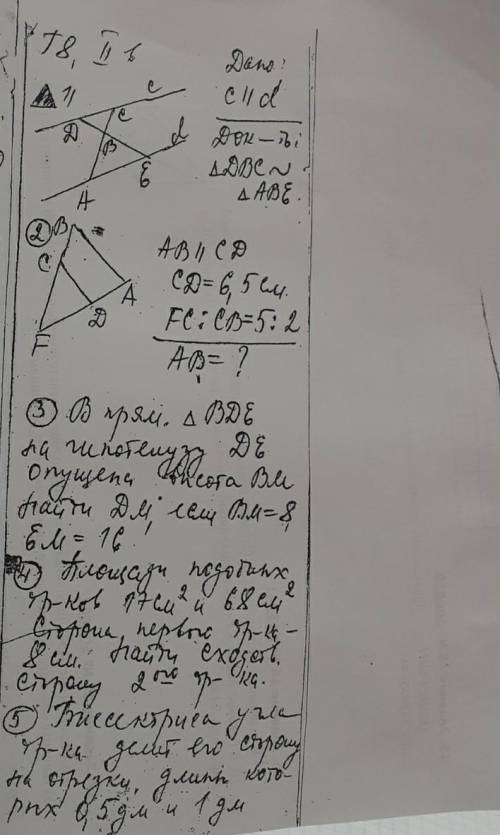 Т8, II в
Дано:
c || d
Док-ть:
△DBC ~
△ABE.
1)
c
C
D
B
d
E
A
2
B
C
A
D
F
AB || CD
CD = 6,5 см.
FC : CB = 5 : 2
AB = ?
3 В прям. △ BDE
на гипотенузу DE
опущена высота BM
Найти DM, если BM = 8,
EM = 16
4 Площади подобных
тр-ков 17 см² и 68 см²
Сторона первого тр-ка -
8 см. Найти сходств.
сторону 2ого тр-ка.
5 Биссектриса угла
тр-ка делит его сторону
на отрезки, длины кото-
рых 0,5 дм и 1 дм